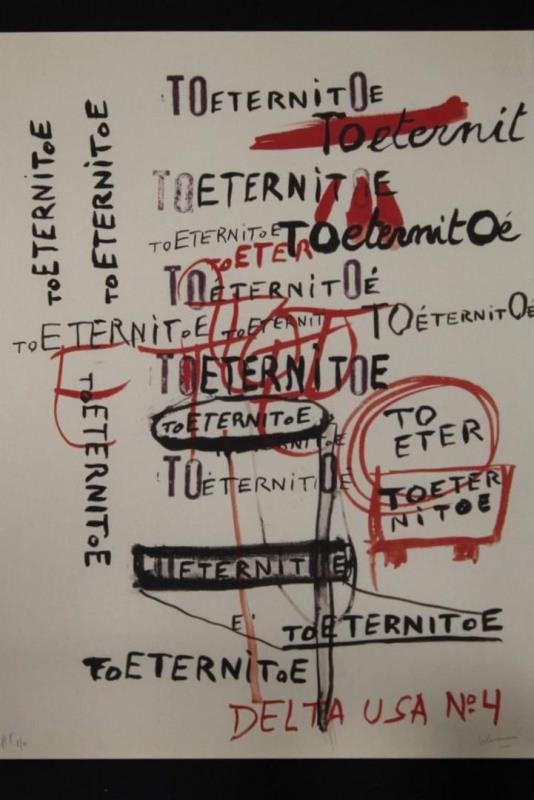 TOETERNITOE
TOeternit
TOETERNITOE
TOETERNITOE
TOETERNITOE
TOETERNITOE
TOETERNITOE
TOeternitOé
TOETER
TOÉTERNITOÉ
TOETERNITOE
TOETERNIT
TOÉTERNITOÉ
TOETERNITOE
TOETERNITOE
TOETERNITOE
TO
ETER
TOETERNITOE
TOETER
NITOE
ETERNIT
E'
TOETERNITOE
TOETERNITOE
DELTA USA Nº4